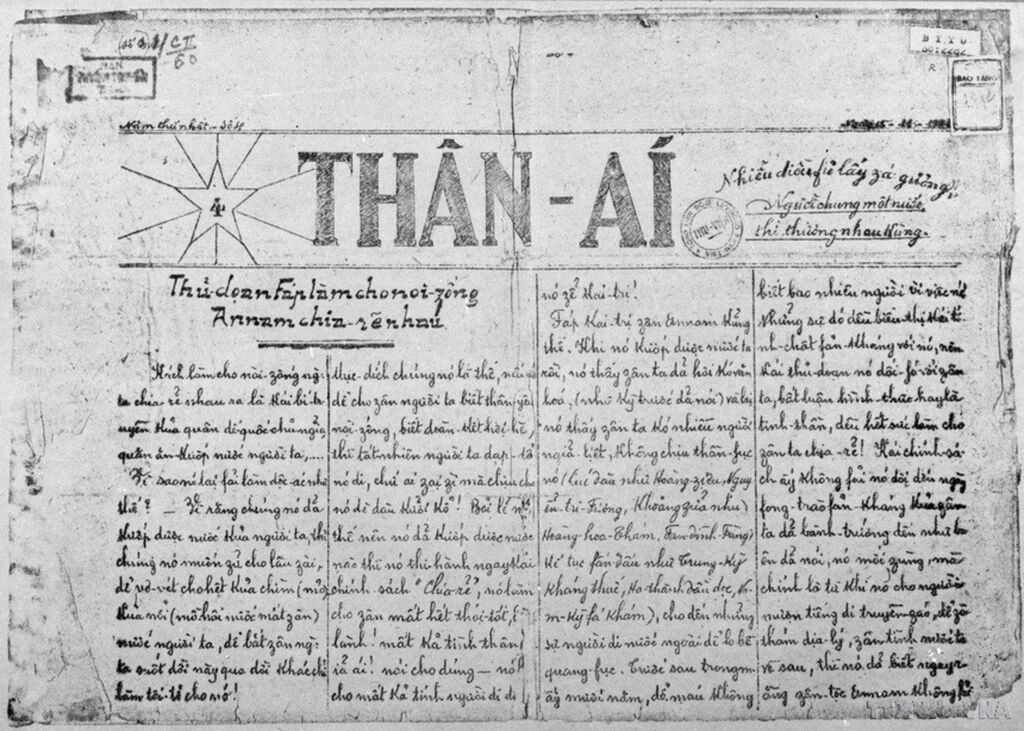 Năm thứ nhất - Số 4
THÂN-ÁI
Nhiễu điều fủ lấy zá gương
Người chung một nước
thì thương nhau kùng.
Thủ-đoạn Fáp làm cho nòi-zống
Annam chia-rẽ nhau
Kách làm cho nòi-zống ng-
ta chia rẽ nhau ra là kái bí-tr
uyền kủa quân đế quốc chủ-nghĩa
quân ăn-kướp nước người ta,....
Vì sao nó lại fải làm độc-ác như
thế? - Vì rằng chúng nó đã
kướp được nước kủa người ta, thì
chúng nó muốn zữ cho lâu zài,
để vơ-vét cho hết kủa chìm, 
kủa nổi (mồ hôi nước mắt zân)
nước người ta, để bắt zân ng-
ta suốt đời này qua đời khác chỉ
làm tôi-tớ cho nó!
Mục-đích chúng nó là thế, nếu
để cho zân người ta biết thân-yêu
nòi-zống, biết đoàn-kết thời
thì tất nhiên người ta đạp-đổ
nó đi, chứ ai zại zì mà chịu cho
nó đè đầu kưỡi kổ! Bởi lẽ
thế nên nó đã kướp được nước
nào thì nó thi hành ngay kái
chính-sách "Chia-rẽ", nó làm
cho zân mất hết thói tốt,
lành! mất kả tình thân
ái! nói cho đúng - nó
cho mất kả tính người đi để
nó zễ kai-trị!
Fáp kai-trị zân Annam kũng
thế. Khi nó kướp được nước ta
rồi, nó thấy zân ta đã hơi kó văn
hoá, (như kỳ trước đã nói) và lại
nó thấy zân ta kó nhiều người
nghĩa-liệt, không chịu thần-fục
nó (lúc đầu như Hoàng-ziệu, Nguy
ễn-tri-Fương, khoảng zữa như
Hoàng-hoa-Thám, Fan-đình-Fùng)
kế tục fấn đấu như Trung-Kỳ
kháng thuế, Hà-thành đầu độc,
m-Kỳ fá khám), cho đến những
sự người đi nước ngoài để lo bề
quang-fục. Trước sau trong m-
ấy mươi năm, đổ máu không
biết bao nhiêu người vì việc nó
Những sự đó đều biểu-thị kái tí-
nh-chất fản-kháng với nó, nên
kái thủ-đoạn nó đối-fó với zân
ta, bất luận hình-thức hay là
tinh-thần, đều hết sức làm cho
zân ta chia-rẽ! Kái chính-sá-
ch ấy không fải nó đợi đến ngày
fong-trào fản-kháng kủa zân
ta đã bành-trướng đến như
ên đã nói, nó mới zùng, mà
chính là từ khi nó cho người
mượn tiếng đi truyền-záo, để zò
thám địa-lý, zân tình nước ta
về sau, thì nó đã biết ngay r-
ằng zân-tộc Annam không fải